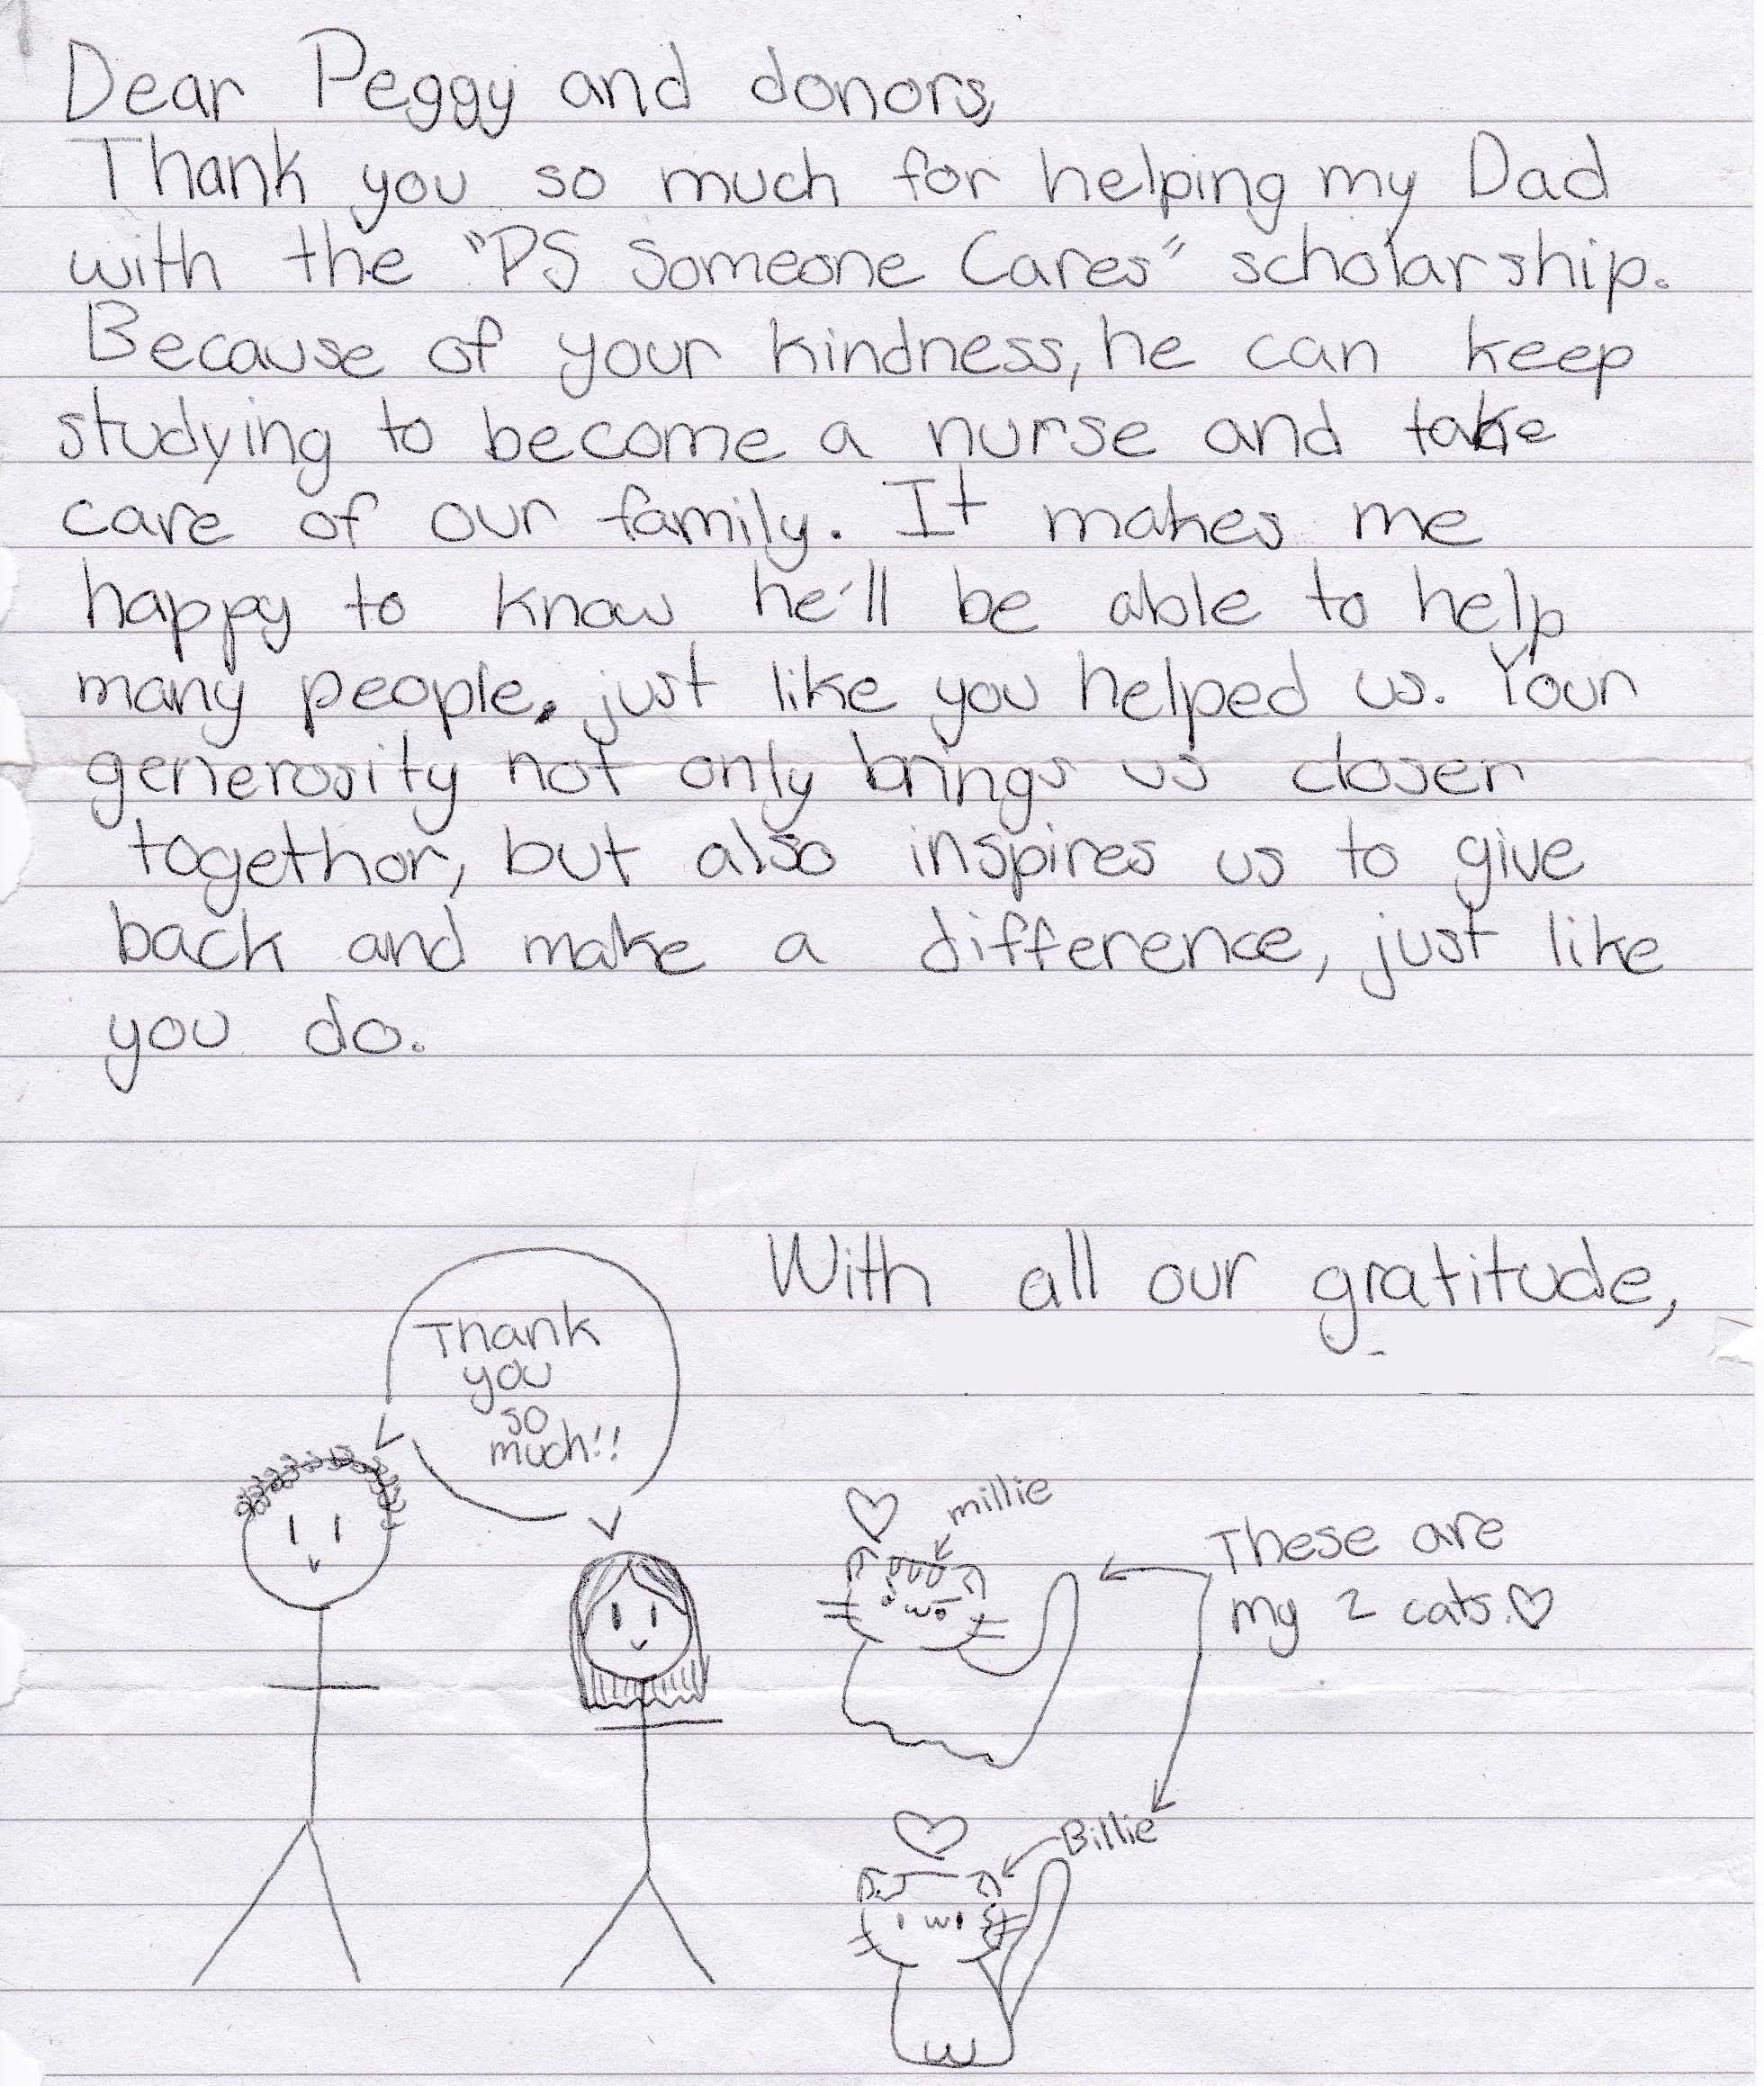 Dear Peggy and donors,
Thank you so much for helping my Dad
with the "PS Someone Cares" scholarship.
Because of your kindness, he can keep
studying to become a nurse and take
care of our family. It makes me
happy to know he'll be able to help
many people, just like you helped us. Your
generosity not only brings us closer
togethor, but also inspires us to give
back and make a difference, just like
you do.
With all our gratitude,
Thank
you
so
much!!
millie
These are
my 2 cats.♡
Billie